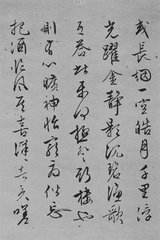 或長烟一空皓月千里浮
光躍金靜影沉璧漁歌
互答此樂何極登斯樓也
則有心曠神怡寵辱偕忘
把酒臨風其喜洋洋者矣嗟